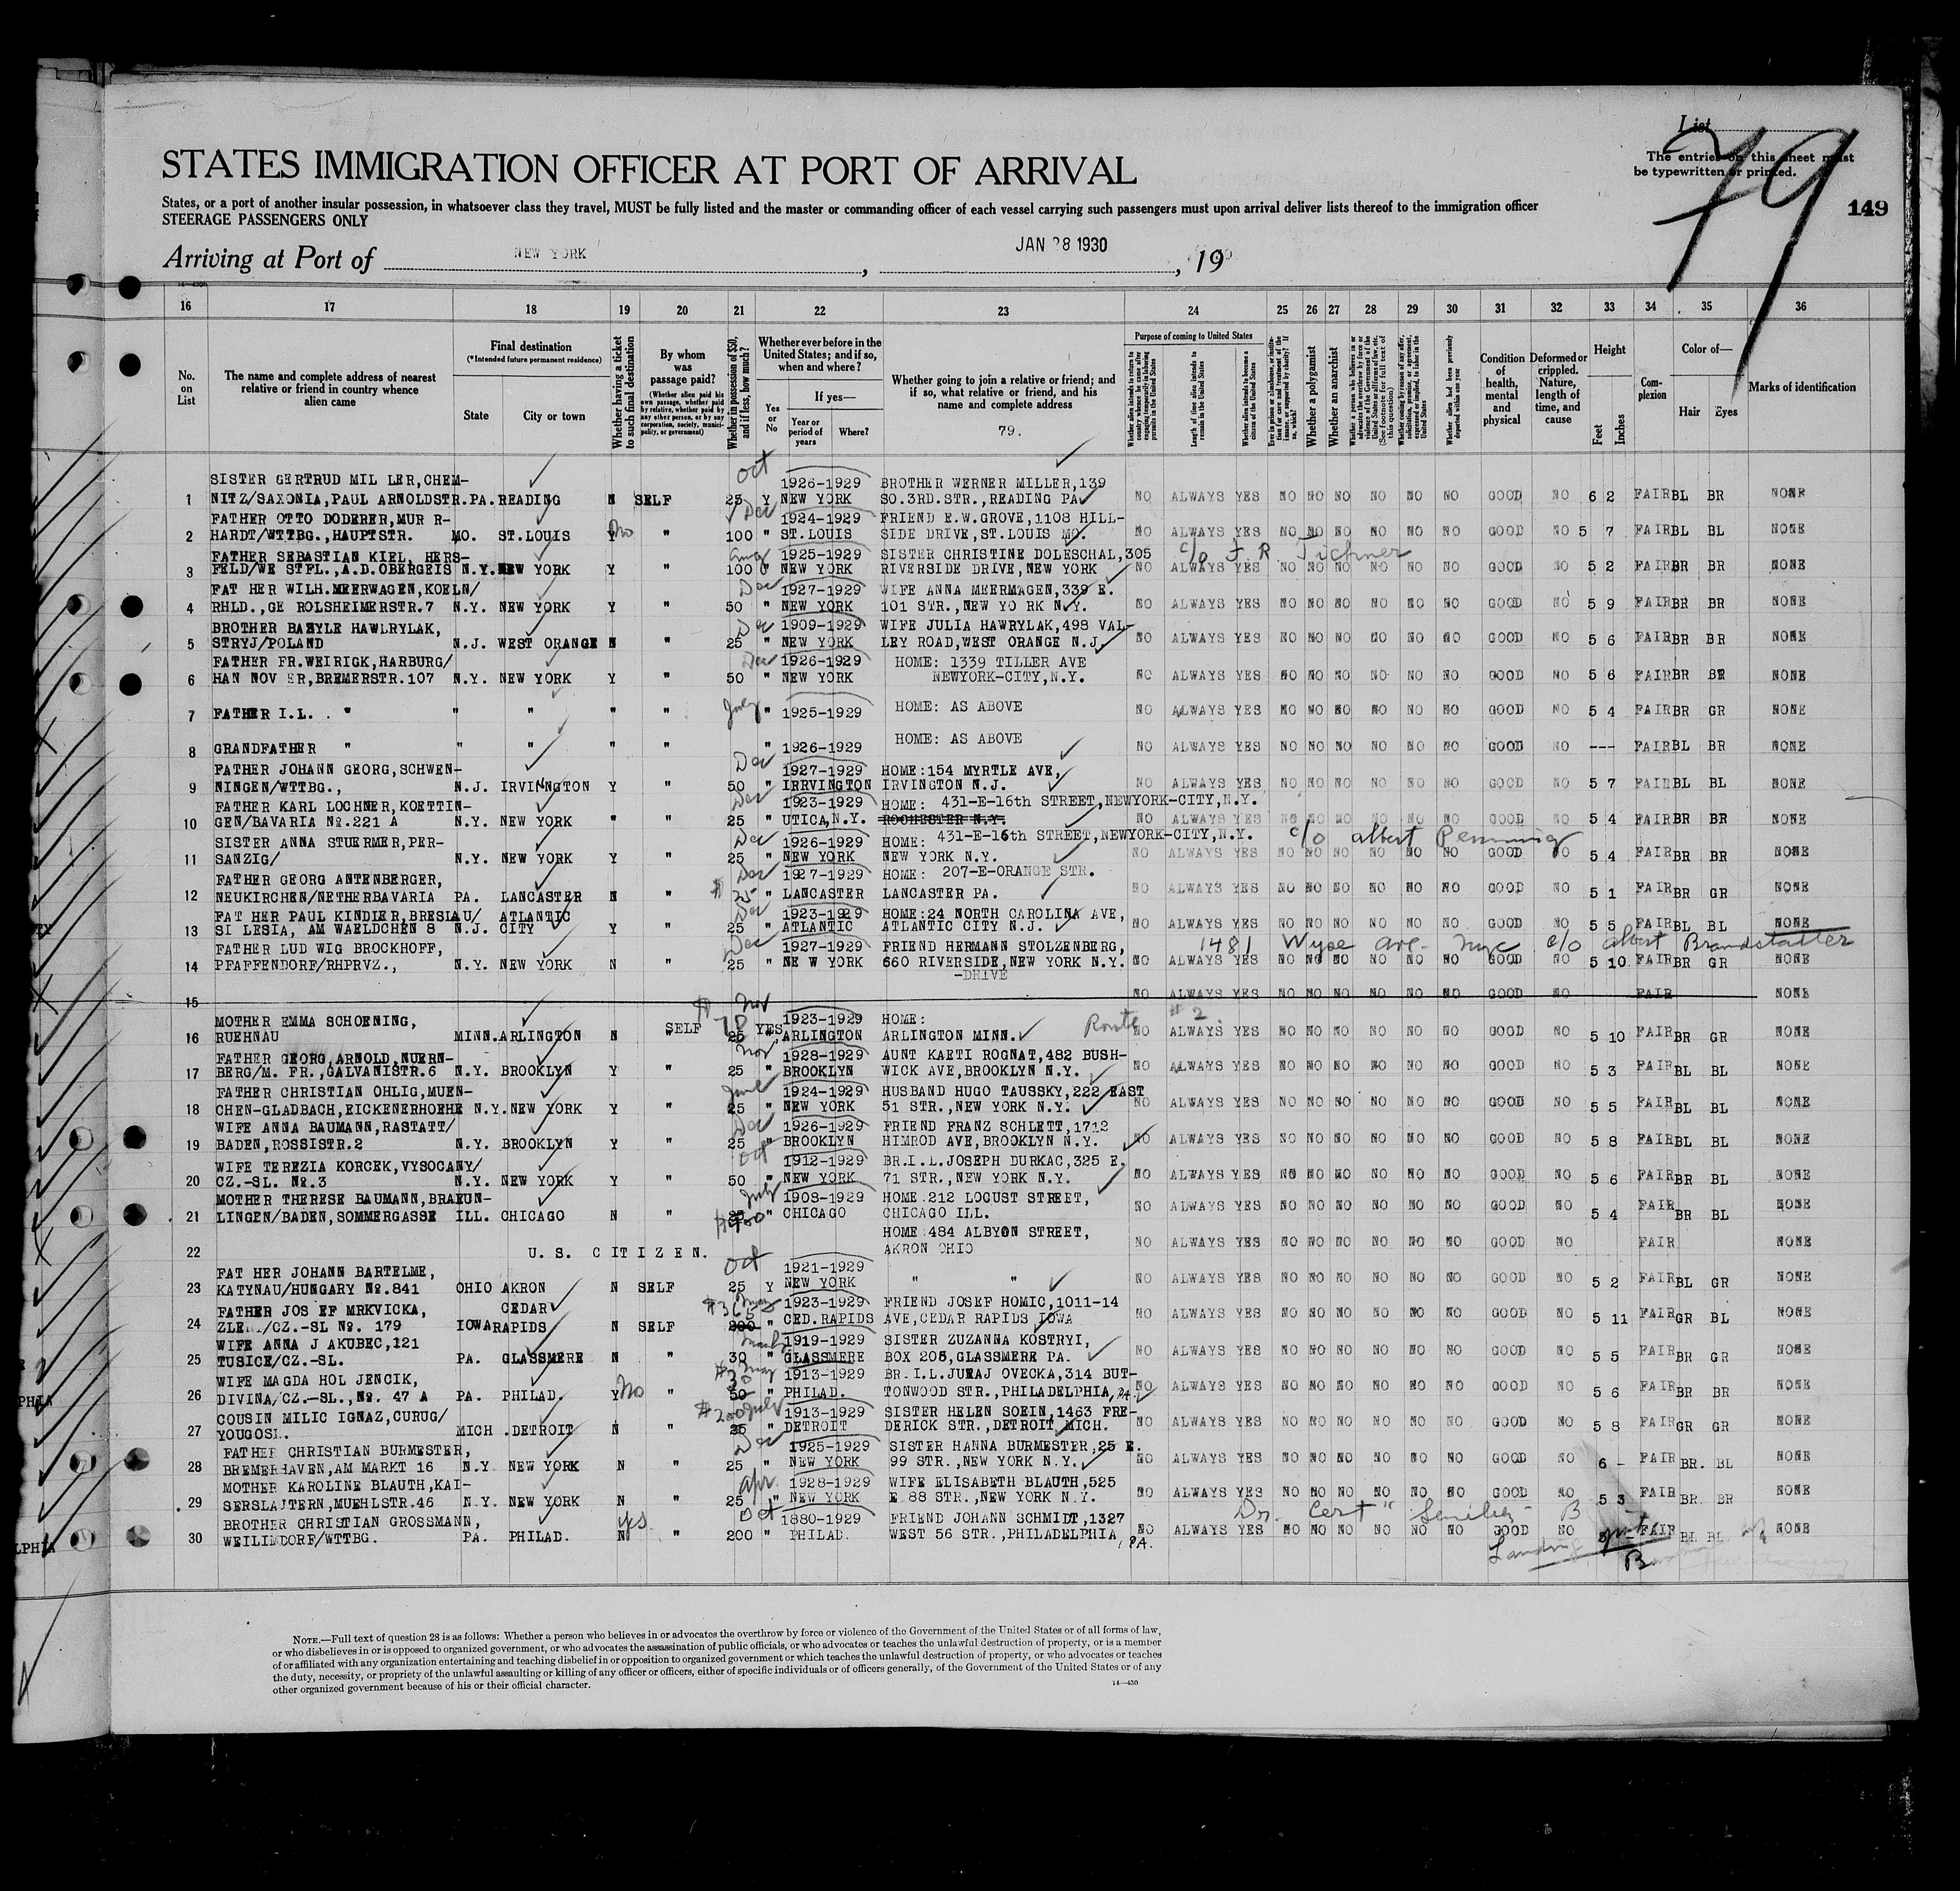 List
The entries on this sheet must
be typewritten or printed.
79
149
STATES IMMIGRATION OFFICER AT PORT OF ARRIVAL
States, or a port of another insular possession, in whatsoever class they travel, MUST be fully listed and the master or commanding officer of each vessel carrying such passengers must upon arrival deliver lists thereof to the immigration officer
STEERAGE PASSENGERS ONLY
Arriving at Port of NEW YORK , JAN 28 1930 , 19
16 17 18 19 20 21 22 23 24 25 26 27 28 29 30 31 32 33 34 35 36
No. on List
The name and complete address of nearest relative or friend in country whence alien came
Final destination
(*Intended future permanent residence)
State City or town
Whether having a ticket to such final destination
By whom was passage paid?
(Whether alien paid his own passage, whether paid by relative, whether paid by any other person, or by any corporation, society, municipality, or government)
Whether in possession of $50, and if less, how much?
Whether ever before in the United States; and if so, when and where?
Yes or No
If yes—
Year or period of years Where?
Whether going to join a relative or friend; and if so, what relative or friend, and his name and complete address
79.
Purpose of coming to United States
Length of time alien intends to remain in the United States
Whether alien intends to become a citizen of the United States
Whether a polygamist
Whether an anarchist
Condition of health, mental and physical
Deformed or crippled. Nature, length of time, and cause
Height
Feet Inches
Complexion
Color of—
Hair Eyes
Marks of identification
Oct
SISTER GERTRUD MIL LER,CHEM- 1926-1929 BROTHER WERNER MILLER,139
1 NITZ/SAXONIA,PAUL ARNOLDSTR. PA. READING N SELF 25 Y NEW YORK SO.3RD.STR.,READING PA. NO ALWAYS YES NO NO NO NO NO NO GOOD NO 6 2 FAIR BL BR NONE
FATHER OTTO DODERER,MUR R- Dec 1924-1929 FRIEND E.W.GROVE,1108 HILL-
2 HARDT/WTTBG.,HAUPTSTR. MO. ST.LOUIS Y No " 100 " ST.LOUIS SIDE DRIVE,ST.LOUIS MO. NO ALWAYS YES NO NO NO NO NO NO GOOD NO 5 7 FAIR BL BL NONE
FATHER SEBASTIAN KIEL, HERS- Aug 1925-1929 SISTER CHRISTINE DOLESCHAL,305 c/o F. R. Tichner
3 FELD/WE STFL.,A.D.OBERGEIS N.Y. NEW YORK Y " 100 " NEW YORK RIVERSIDE DRIVE,NEW YORK NO ALWAYS YES NO NO NO NO NO NO GOOD NO 5 2 FAIR BR BR NONE
FAT HER WILH.MEERWAGEN,KOELN/ Dec 1927-1929 WIFE ANNA MEERMAGEN,339 E.
4 RHLD.,GE ROLSHEIMERSTR.7 N.Y. NEW YORK Y " 50 " NEW YORK 101 STR.,NEW YO RK N.Y. NO ALWAYS YES NO NO NO NO NO NO GOOD NO 5 9 FAIR BR BR NONE
BROTHER BAZYLE HAWLRYLAK, Dec 1909-1929 WIFE JULIA HAWRYLAK,498 VAL-
5 STRYJ/POLAND N.J. WEST ORANGE N " 25 " NEW YORK LEY ROAD,WEST ORANGE N.J. NO ALWAYS YES NO NO NO NO NO NO GOOD NO 5 6 FAIR BR BR NONE
FATHER FR.WEIRIGK,HARBURG/ Dec 1926-1929 HOME: 1339 TILLER AVE
6 HAN NOV ER,BREMERSTR.107 N.Y. NEW YORK Y " 50 " NEW YORK NEWYORK-CITY,N.Y. NO ALWAYS YES NO NO NO NO NO NO GOOD NO 5 6 FAIR BR BR NONE
7 FATHER I.L. . " " " " " July " 1925-1929 HOME: AS ABOVE NO ALWAYS YES NO NO NO NO NO NO GOOD NO 5 4 FAIR BR GR NONE
8 GRANDFATHER " " " " " " 1926-1929 HOME: AS ABOVE NO ALWAYS YES NO NO NO NO NO NO GOOD NO --- FAIR BL BR NONE
FATHER JOHANN GEORG,SCHWEN- Dec 1927-1929 HOME:154 MYRTLE AVE,
9 NINGEN/WTTBG., N.J. IRVINGTON Y " 50 " IRRVINGTON IRVINGTON N.J. NO ALWAYS YES NO NO NO NO NO NO GOOD NO 5 7 FAIR BL BL NONE
FATHER KARL LOCHNER,KOETTIN- Dec 1923-1929 HOME: 431-E-16th STREET,NEWYORK-CITY,N.Y.
10 GEN/BAVARIA No.221 A N.Y. NEW YORK " " 25 " UTICA,N.Y. ROCHESTER N.Y. NO ALWAYS YES NO NO NO NO NO NO GOOD NO 5 4 FAIR BR BR NONE
SISTER ANNA STUERMER,PER- Dec 1926-1929 HOME: 431-E-16th STREET,NEWYORK-CITY,N.Y. c/o Albert
11 SANZIG/ N.Y. NEW YORK Y " 25 " NEW YORK NEW YORK N.Y. NO ALWAYS YES NO NO NO NO NO NO GOOD NO 5 4 FAIR BR BR NONE
FATHER GEORG ANTENBERGER, Dec 1927-1929 HOME: 207-E-ORANGE STR.
12 NEUKIRCHEN/NETHERBAVARIA PA. LANCASTER N " $ 25 " LANCASTER LANCASTER PA. NO ALWAYS YES NO NO NO NO NO NO GOOD NO 5 1 FAIR BR GR NONE
FAT HER PAUL KINDLER,BRESLAU/ ATLANTIC Dec 1923-1929 HOME:24 NORTH CAROLINA AVE,
13 SI LESIA, AM WAELDCHEN 8 N.J. CITY Y " 25 " ATLANTIC ATLANTIC CITY N.J. NO ALWAYS YES NO NO NO NO NO NO GOOD NO 5 5 FAIR BL BL NONE
FATHER LUD WIG BROCKHOFF, Dec 1927-1929 FRIEND HERMANN STOLZENBERG, 1481 Wyse ave- nyc c/o Albert Brandstatter
14 PFAFFENDORF/RHPRVZ., N.Y. NEW YORK N " 25 " NE W YORK 660 RIVERSIDE,NEW YORK N.Y. NO ALWAYS YES NO NO NO NO NO NO GOOD NO 5 10 FAIR BR GR NONE
-DRIVE
15 NO ALWAYS YES NO NO NO NO NO NO GOOD NO FAIR NONE
MOTHER EMMA SCHOENING, $ 78 Nov 1923-1929 HOME: Route # 2
16 RUEHNAU MINN. ARLINGTON N SELF " 25 YES, " ARLINGTON ARLINGTON MINN. NO ALWAYS YES NO NO NO NO NO NO GOOD NO 5 10 FAIR BR GR NONE
FATHER GEORG,ARNOLD,NUERN- Nov 1928-1929 AUNT KAETI ROGNAT,482 BUSH-
17 BERG/M. FR.,GALVANISTR.6 N.Y. BROOKLYN Y " 25 " BROOKLYN WICK AVE,BROOKLYN N.Y. NO ALWAYS YES NO NO NO NO NO NO GOOD NO 5 3 FAIR BL BL NONE
FATHER CHRISTIAN OHLIG,MUEN- June 1924-1929 HUSBAND HUGO TAUSSKY,222 EAST
18 CHEN-GLADBACH,EICKENERHOEHE N.Y. NEW YORK Y " 25 " NEW YORK 51 STR.,NEW YORK N.Y. NO ALWAYS YES NO NO NO NO NO NO GOOD NO 5 5 FAIR BL BL NONE
WIFE ANNA BAUMANN,RASTATT/ Dec 1926-1929 FRIEND FRANZ SCHLETT,1712
19 BADEN,ROSSISTR.2 N.Y. BROOKLYN Y " 25 " BROOKLYN HIMROD AVE,BROOKLYN N.Y. NO ALWAYS YES NO NO NO NO NO NO GOOD NO 5 8 FAIR BL BL NONE
WIFE TEREZIA KORCEK,VYSOCANY/ Oct 1912-1929 BR.I.L.JOSEPH DURKAC,325 E.
20 CZ.-SL. No.3 N.Y. NEW YORK Y " 50 " NEW YORK 71 STR.,NEW YORK N.Y. NO ALWAYS YES NO NO NO NO NO NO GOOD NO 5 6 FAIR BR BL NONE
MOTHER THERESE BAUMANN,BRAEUN- July 1908-1929 HOME.212 LOCUST STREET,
21 LINGEN/BADEN,SOMMERGASSE ILL. CHICAGO N " " CHICAGO CHICAGO ILL. NO ALWAYS YES NO NO NO NO NO NO GOOD NO 5 4 FAIR BR BL NONE
HOME 484 ALBYON STREET,
22 U. S. C I T I Z E N. AKRON OHIO NO ALWAYS YES NO NO NO NO NO NO GOOD NO FAIR NONE
FAT HER JOHANN BARTELME, Oct 1921-1929
23 KATYNAU/HUNGARY No.841 OHIO AKRON N SELF 25 Y NEW YORK " " NO ALWAYS YES NO NO NO NO NO NO GOOD NO 5 2 FAIR BL GR NONE
FATHER JOS EF MRKVICKA, CEDAR $365 1923-1929 FRIEND JOSEF HOMIC,1011-14
24 /CZ.-SL No. 179 IOWA RAPIDS N SELF 200 " CED.RAPIDS AVE,CEDAR RAPIDS IOWA NO ALWAYS YES NO NO NO NO NO NO GOOD NO 5 11 FAIR GR BL NONE
WIFE ANNA J AKUBEC,121 March 1919-1929 SISTER ZUZANNA KOSTRYI,
25 TUSICE/CZ.-SL. PA. GLASSMERE N " 30 " GLASSMERE BOX 205,GLASSMERE PA. NO ALWAYS YES NO NO NO NO NO NO GOOD NO 5 5 FAIR BR GR NONE
WIFE MAGDA HOL JENCIK, May 1913-1929 BR.I.L.JURAJ OVECKA,314 BUT-
26 DIVINA/CZ.-SL., No. 47 A PA. PHILAD. Y No " 50 " PHILAD. TONWOOD STR.,PHILADELPHIA, PA. NO ALWAYS YES NO NO NO NO NO NO GOOD NO 5 6 FAIR BR BR NONE
COUSIN MILIC IGNAZ,CURUG/ $200 July 1913-1929 SISTER HELEN SOEIN,1463 FRE-
27 YOUGOSL. MICH .DETROIT N " 25 " DETROIT DERICK STR.,DETROIT MICH. NO ALWAYS YES NO NO NO NO NO NO GOOD NO 5 8 FAIR GR GR NONE
FATHER CHRISTIAN BURMESTER, Dec 1925-1929 SISTER HANNA BURMESTER,25 E.
28 BREMERHAVEN,AM MARKT 16 N.Y NEW YORK N " 25 " NEW YORK 99 STR.,NEW YORK N.Y. NO ALWAYS YES NO NO NO NO NO NO GOOD NO 6 - FAIR BR. BL NONE
MOTHER KAROLINE BLAUTH,KAI- Apr. 1928-1929 WIFE ELISABETH BLAUTH,525
29 SERSLAUTERN,MUEHLSTR.46 N.Y. NEW YORK N " 25 " NEW YORK E 88 STR.,NEW YORK N.Y. NO ALWAYS YES NO NO NO NO NO NO GOOD NO 5 3 FAIR BR. BR NONE
BROTHER CHRISTIAN GROSSMANN, yes Oct 1880-1929 FRIEND JOHANN SCHMIDT,1327 Dr. Cert " Senility B
30 WEILIMDORF/WTTBG. PA. PHILAD. N " 200 " PHILAD. WEST 56 STR.,PHILADELPHIA, PA. NO ALWAYS YES NO NO NO NO NO NO GOOD NO FAIR BL BL NONE
Landing B
NOTE.—Full text of question 28 is as follows: Whether a person who believes in or advocates the overthrow by force or violence of the Government of the United States or of all forms of law,
or who disbelieves in or is opposed to organized government, or who advocates the assassination of public officials, or who advocates or teaches the unlawful destruction of property, or is a member
of or affiliated with any organization entertaining and teaching disbelief in or opposition to organized government or which teaches the unlawful destruction of property, or who advocates or teaches
the duty, necessity, or propriety of the unlawful assaulting or killing of any officer or officers, either of specific individuals or of officers generally, of the Government of the United States or of any
other organized government because of his or their official character.
14—430